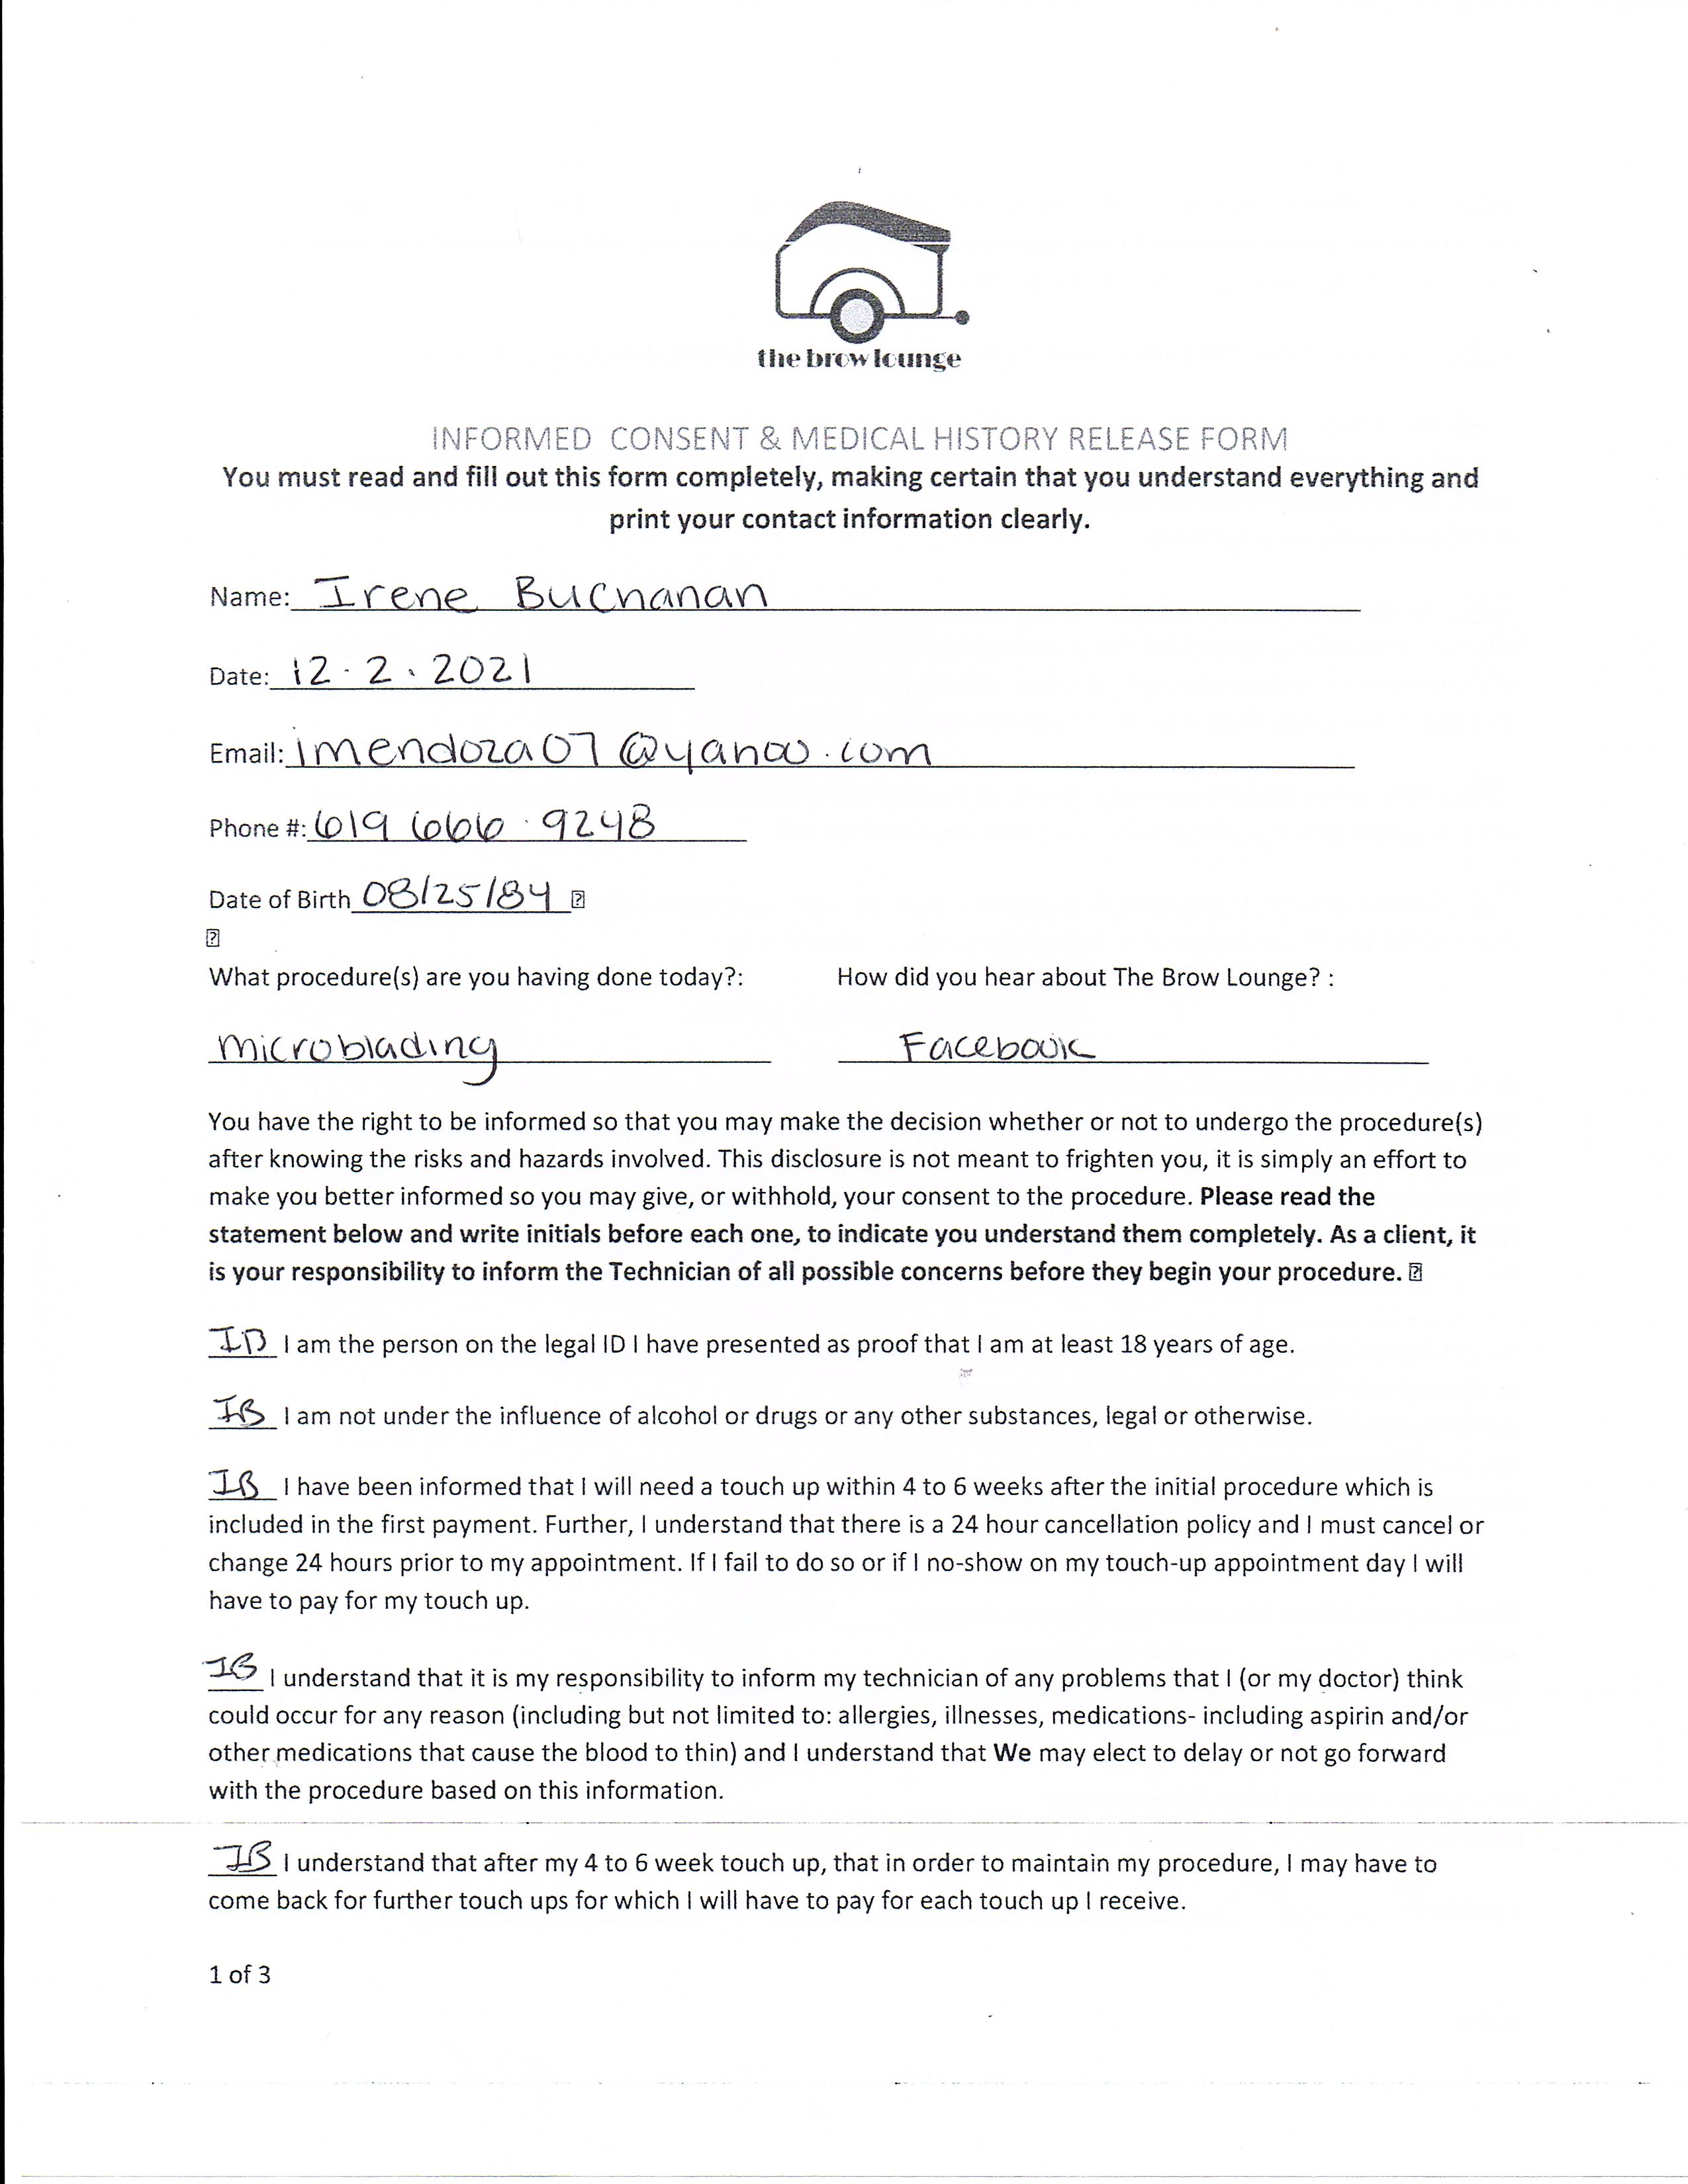 the brow lounge
INFORMED CONSENT & MEDICAL HISTORY RELEASE FORM
You must read and fill out this form completely, making certain that you understand everything and
print your contact information clearly.
Name: Irene Buchanan
Date: 12.2.2021
Email: imendoza07@yahoo.com
Phone #: 619 666 9248
Date of Birth 08/25/84
What procedure(s) are you having done today?: How did you hear about The Brow Lounge? :
microblading Facebook
You have the right to be informed so that you may make the decision whether or not to undergo the procedure(s)
after knowing the risks and hazards involved. This disclosure is not meant to frighten you, it is simply an effort to
make you better informed so you may give, or withhold, your consent to the procedure. Please read the
statement below and write initials before each one, to indicate you understand them completely. As a client, it
is your responsibility to inform the Technician of all possible concerns before they begin your procedure.
IB I am the person on the legal ID I have presented as proof that I am at least 18 years of age.
IB I am not under the influence of alcohol or drugs or any other substances, legal or otherwise.
IB I have been informed that I will need a touch up within 4 to 6 weeks after the initial procedure which is
included in the first payment. Further, I understand that there is a 24 hour cancellation policy and I must cancel or
change 24 hours prior to my appointment. If I fail to do so or if I no-show on my touch-up appointment day I will
have to pay for my touch up.
IB I understand that it is my responsibility to inform my technician of any problems that I (or my doctor) think
could occur for any reason (including but not limited to: allergies, illnesses, medications- including aspirin and/or
other medications that cause the blood to thin) and I understand that We may elect to delay or not go forward
with the procedure based on this information.
IB I understand that after my 4 to 6 week touch up, that in order to maintain my procedure, I may have to
come back for further touch ups for which I will have to pay for each touch up I receive.
1 of 3